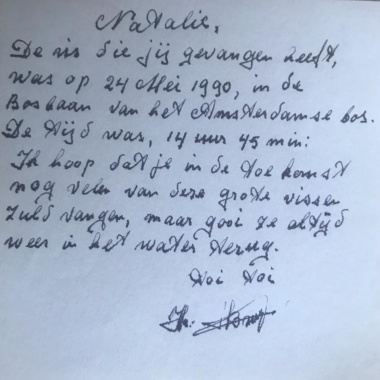 Natalie,
De vis die jij gevangen heeft,
was op 24 Mei 1990, in de
Bosbaan van het Amsterdamse bos.
De tijd was, 14 uur 45 min:
Ik hoop dat je in de toe komst
nog velen van deze grote vissen
zuld vangen, maar gooi ze altijd
weer in het water terug.
Hoi Hoi